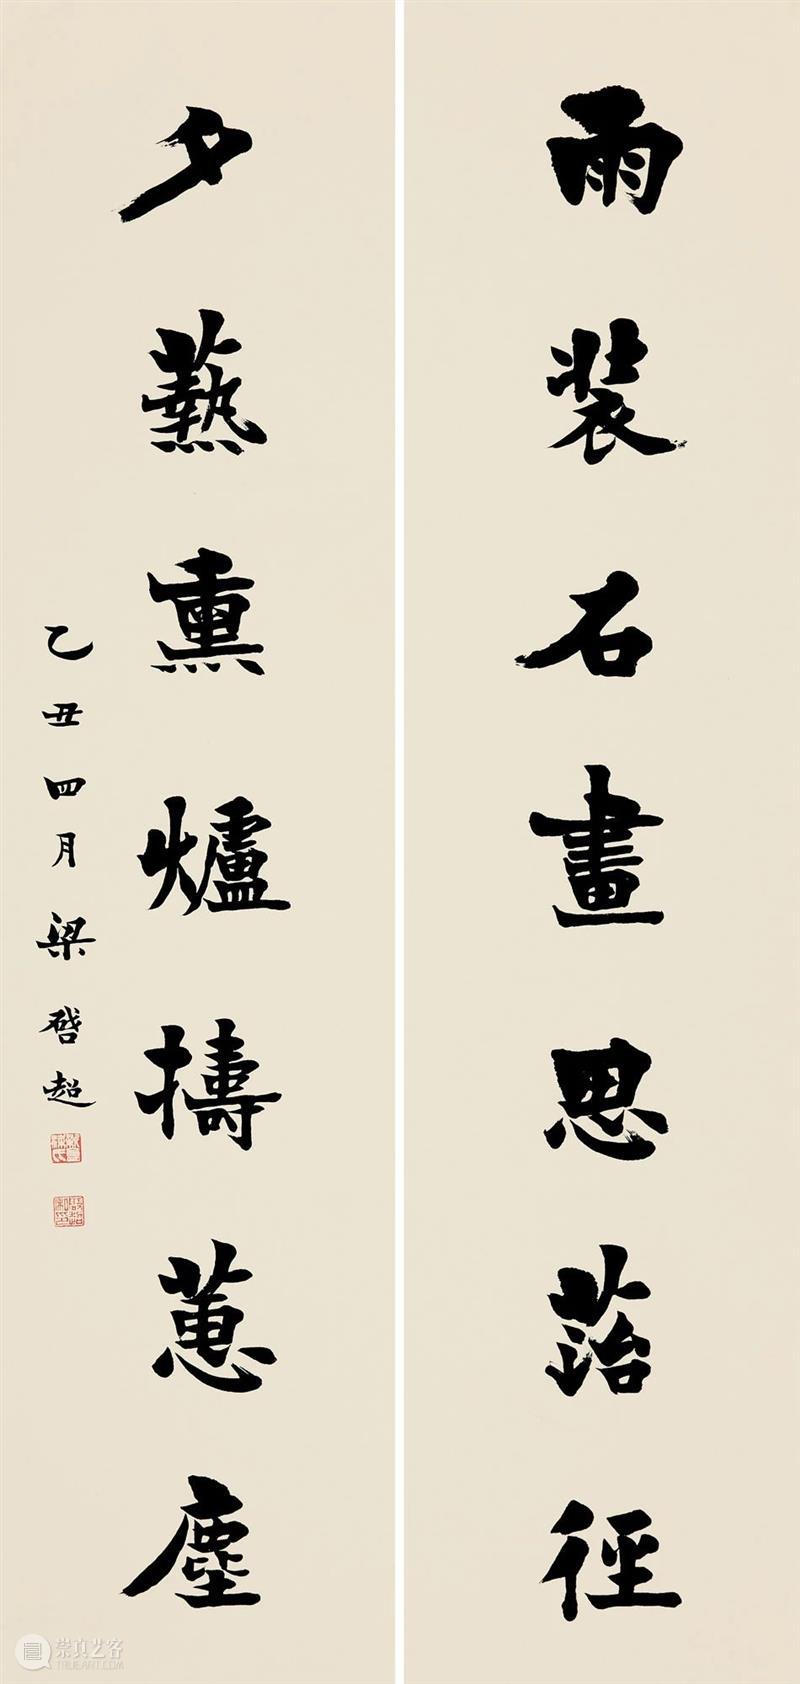 雨裝石畫思菭徑
夕爇熏爐擣蕙塵
乙丑四月梁啓超
崇真艺客
TRUEART.COM